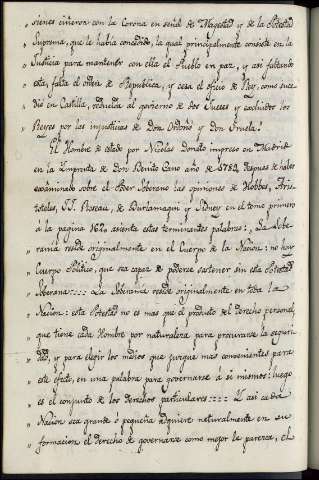 „ sienes ciñeron con la Corona en señal de Magestad y de la Potestad
„ Suprema, que le habia concedido, la qual principalmente consiste en la
„ Justicia para mantener con ella el Pueblo en paz, y asi faltando
„ esta, falta el orden de Republica, y cesa el oficio de Rey, como suce
„ dió en Castilla, reducida al gobierno de dos Jueces y excluidos los
„ Reyes por las injusticias de Don Ordoño y Don Fruela.
El Hombre de estado por Nicolas Donato impreso en Madrid
en la Imprenta de Don Benito Cano año de 1789, despues de haber
examinado sobre el Poder Soberano las opiniones de Hobbes, Aris-
toteles, JJ. Roseau, de Burlamaqui y Sidney en el tomo primero
á la pagina 162 asienta estas terminantes palabras: „ La Sobe-
„ rania reside originalmente en el Cuerpo de la Nacion: no hay
„ Cuerpo Politico, que sea capaz de poderse sostener sin esta Potestad
„ Soberana:::: La Soberania reside originalmente en toda la
„ Nacion: esta Potestad no es mas que el producto del derecho personal,
„ que tiene cada Hombre por naturaleza para procurarse la seguri
„ dad, y para elegir los medios que juzgue mas convenientes para
„ este efecto, en una palabra para governarse á si mismos: luego
„ es el conjunto de los derechos particulares:::: Y asi cada
„ Nacion sea grande ó pequeña adquiere naturalmente en su
„ formacion el derecho de governarse como mejor la parezca, el